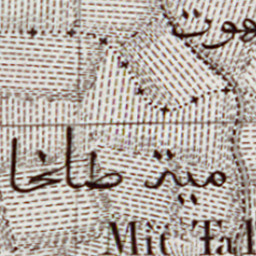 مية طلخا
Mit Tal